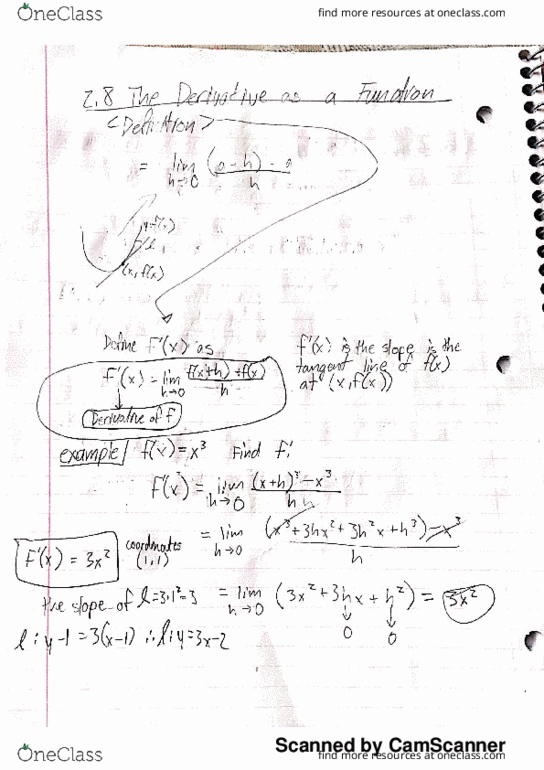 OneClass
find more resources at oneclass.com
2.8 The Derivative as a Function
<Definition>
= lim h→0 (a-h)-a / h
y=f(x)
l
(x, f(x))
Define f'(x) as
f'(x) = lim h→0 f(x+h)+f(x) / h
Derivative of f
f'(x) is the slope is the
tangent line of f(x)
at (x, f(x))
example/ f(x)=x³ Find f'
f'(x) = lim h→0 (x+h)³-x³ / h
= lim h→0 (x³+3hx²+3h²x+h³)-x³ / h
F'(x) = 3x²
coordinates
(1,1)
the slope of l=3·1²=3
= lim h→0 (3x²+3hx+h²) = 3x²
0 0
l: y-1=3(x-1) ∴ l: y=3x-2
Scanned by CamScanner
OneClass
find more resources at oneclass.com